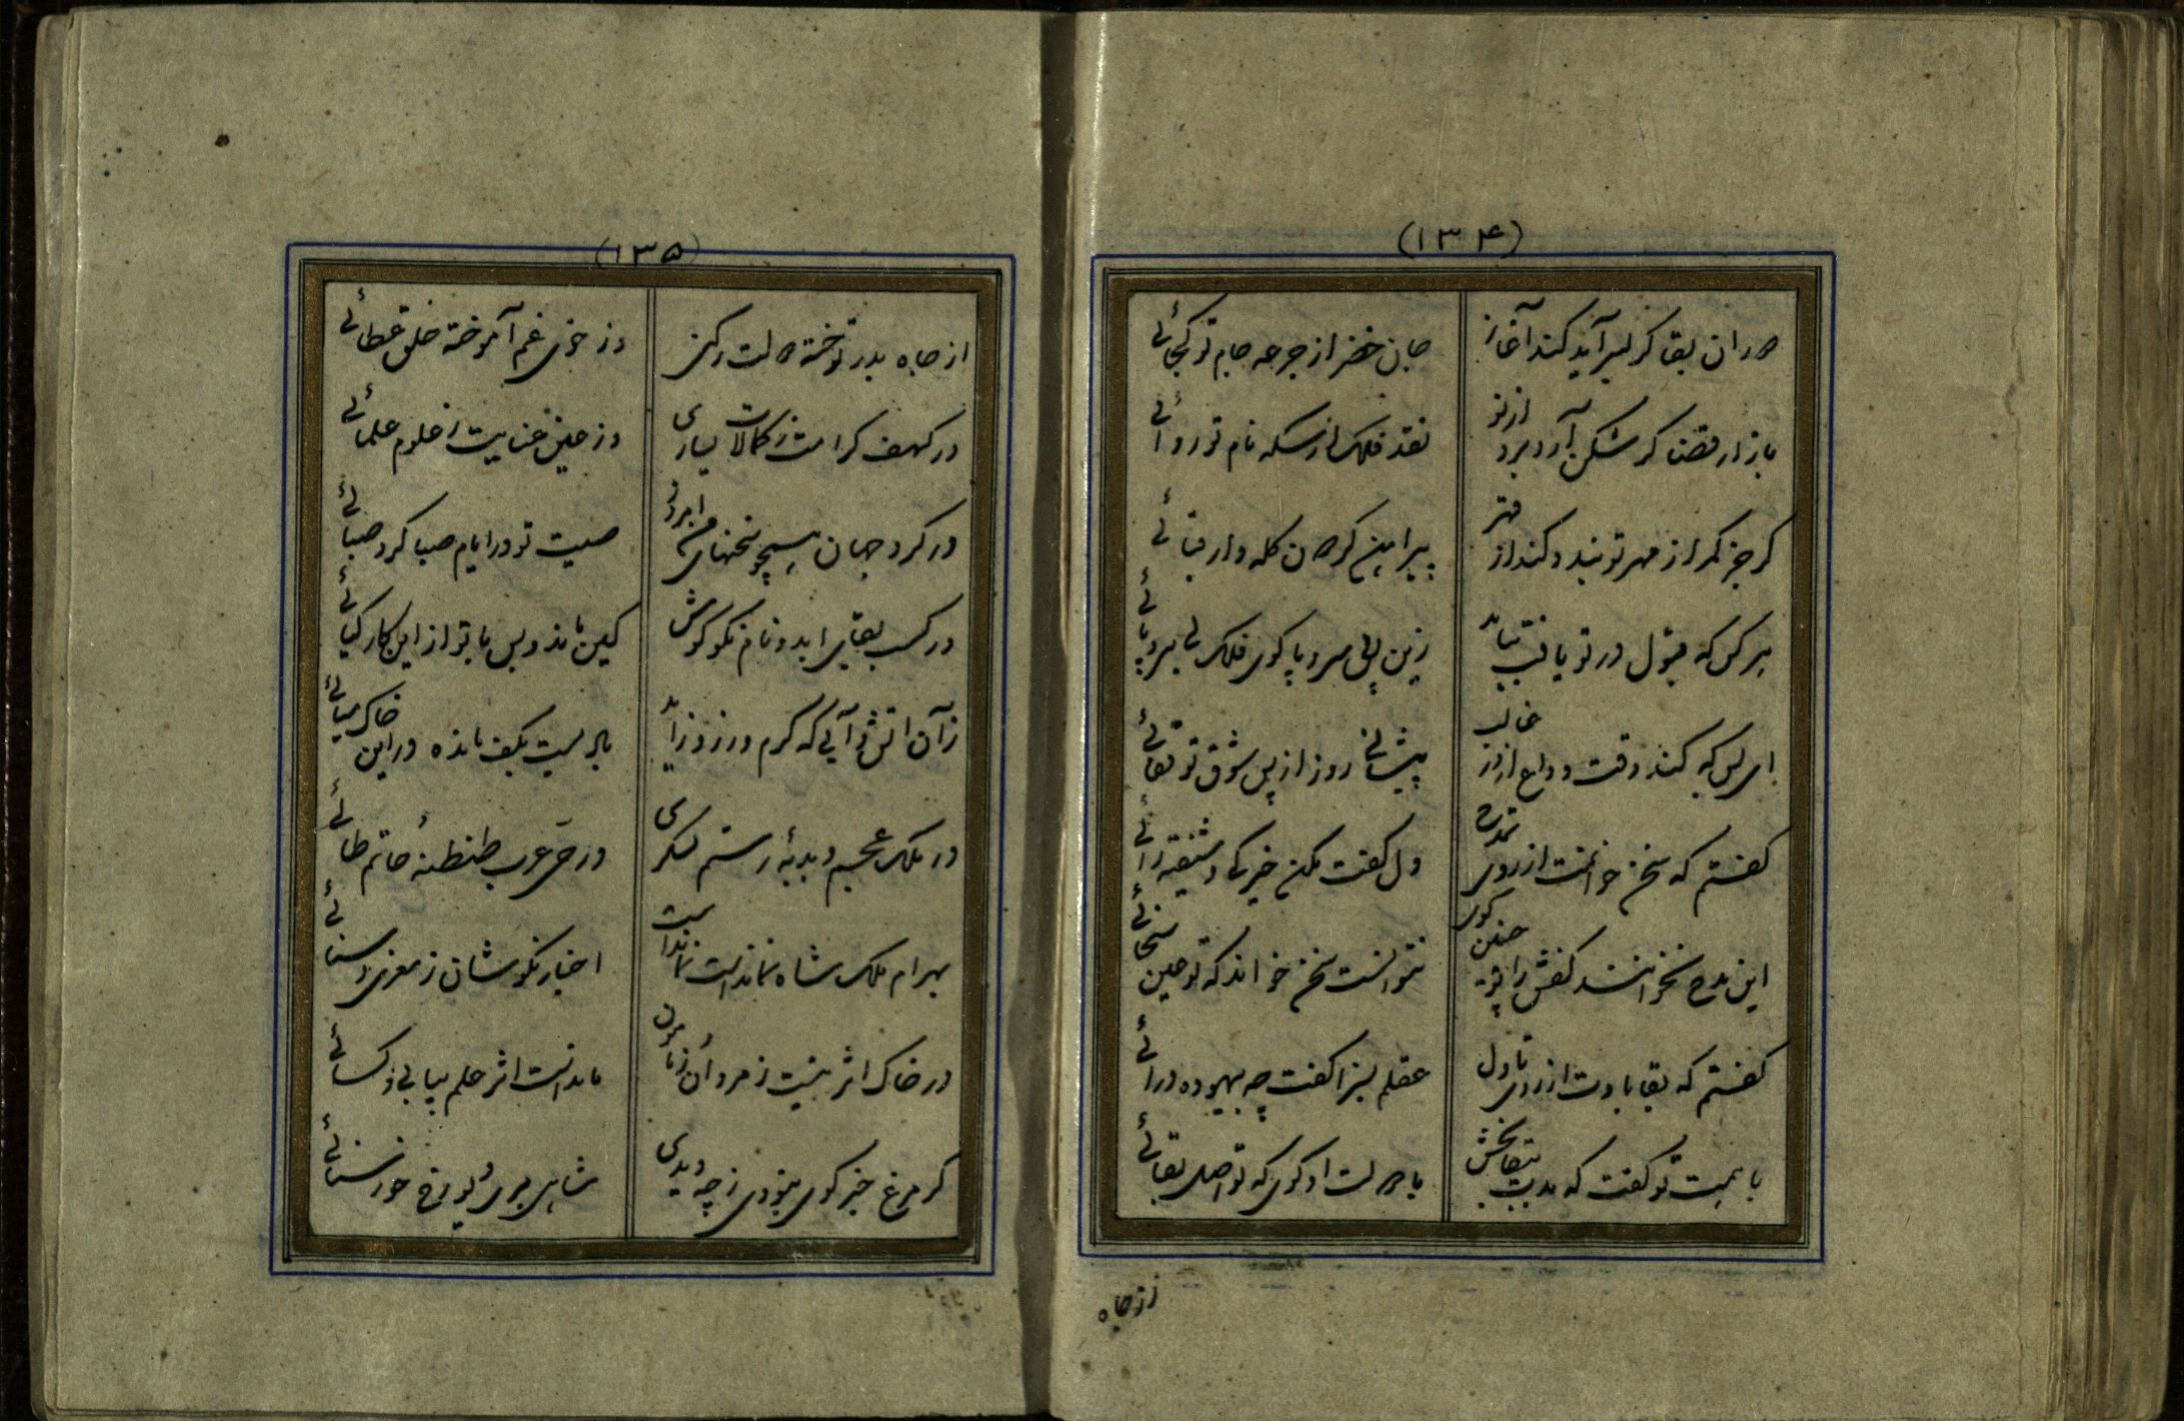 (۱۳۴)
دوران بقا گر بسر آید کند آغاز
جان خضر از جرعه جام تو کجائی
بازار قضا گر شکن آرد برد از تو
نقد فلک از سکه نام تو روائی
گر جز کمر از مهر تو بندد کند از قهر
پیراهن گردان کله وار قبائی
هر کس که قبول در تو یافت نیابد
زین بی سر و پا گوی فلک بی سر و پائی
کند وقت وداع از در
پیشانی روز از پس شوق تو قفائی
گفتم که سخن خوانمت از روی تمدح
دل گفت مکن خیرگی و شیفته رائی
این مدح نخوانند کفش را چو چنین گوی
نتوانست سخن خواند که تو عین سخائی
گفتم که بقا بادت از روی تاول
عقلم بسزا گفت چه بیهوده درائی
با همت تو گفت که بقابخش
با دولت او گوی که تو اصل بقائی
از جاه
(۱۳۵)
از جاه پدر توخته دولت رکنی
وز خوی عم آموخته خلق عطائی
در کهف کرامت ز کمالات یساری
وز عین عنایت ز علوم علمائی
در گرد جهان همچو سخنهای من امروز
صیت تو در ایام صبا کرد صبائی
در کسب بقای ابد و نام نکو کوش
کین ماند و بس یا تو از این کار کیائی
زان آتش و آبی که گرم ورزد و زاید
باد است بکف مانده در این خاک میائی
در ملک عجم دبدبهٔ رستم سگزی
در حی عرب طنطنهٔ حاتم طائی
بهرام ملک شاه نماند است نماند است
اخبار نکوشان ز معزی و سنائی
در خاک اثر نیست ز مردان زمانه
ماند است اثر علم بیابی ز کسائی
گر مرغ خبر گوی نبودی ز چه دیدی